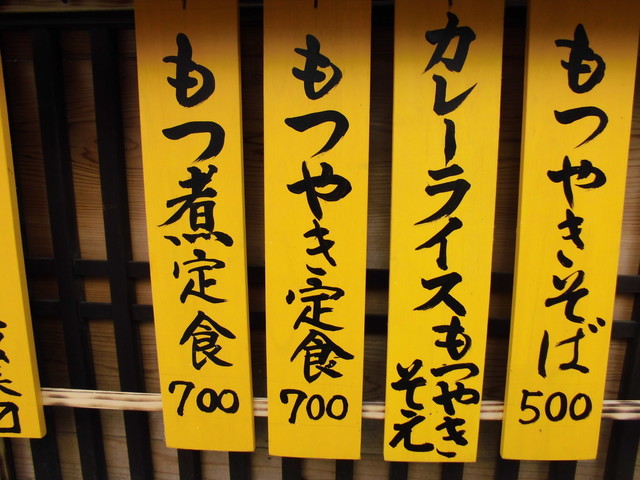 もつやきそば
500
カレーライスもつやき
そえ
もつやき定食
700
もつ煮定食
700